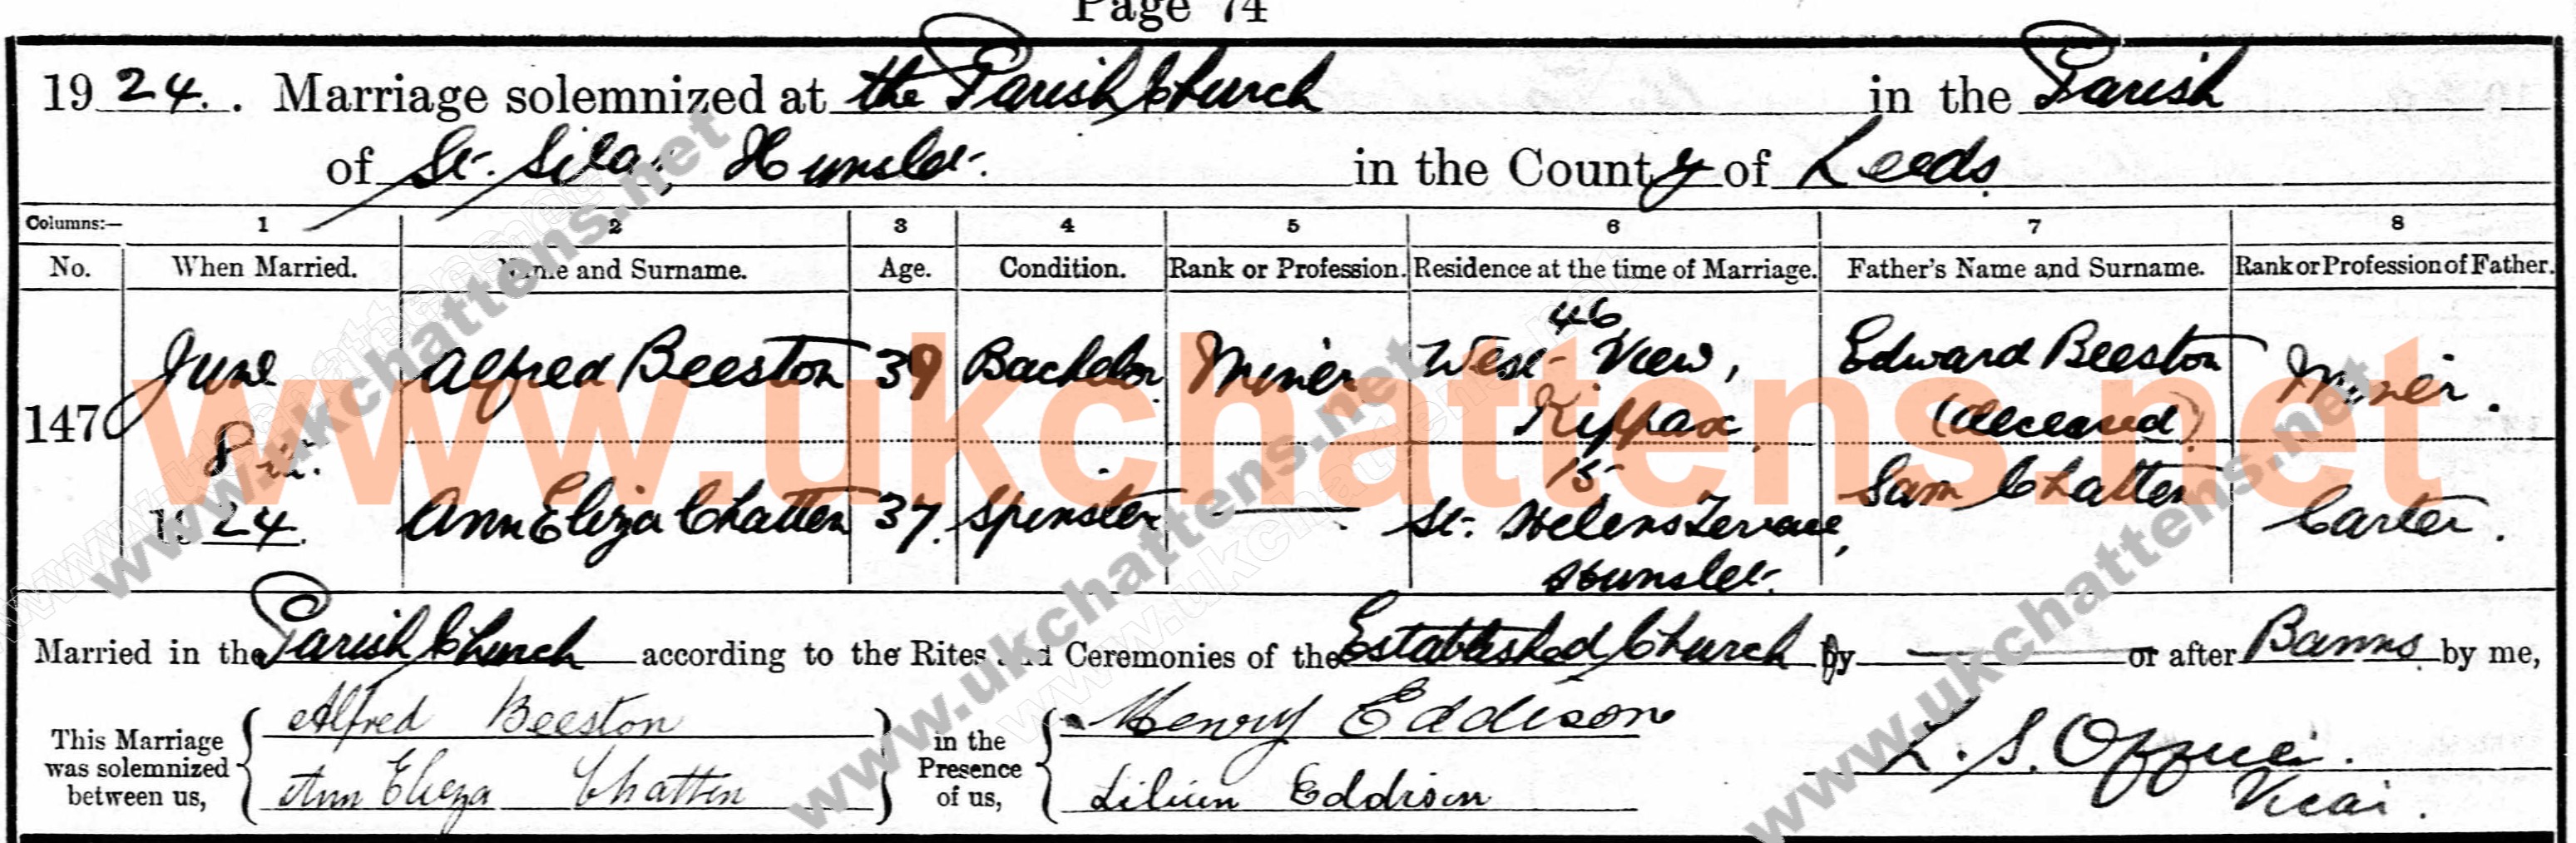 Page 74
1924. Marriage solemnized at the Parish Church in the Parish
of St. Silas Hunslet. in the County of Leeds
Columns:— 1 2 3 4 5 6 7 8
No. When Married. Name and Surname. Age. Condition. Rank or Profession. Residence at the time of Marriage. Father's Name and Surname. Rank or Profession of Father.
147 June 8th. 1924. Alfred Beeston 39 Bachelor Miner 46 West View, Kippax Edward Beeston (deceased) Miner.
Ann Eliza Chatten 37. Spinster 15 St. Helens Terrace, Hunslet. Sam Chatten Carter.
Married in the Parish Church according to the Rites and Ceremonies of the Established Church by or after Banns by me,
This Marriage was solemnized between us,
Alfred Beeston
Ann Eliza Chatten
in the Presence of us,
Henry Eddison
Lilian Eddison
L. S.
Vicar.
www.ukchattens.net
www.ukchattens.net
www.ukchattens.net
www.ukchattens.net
www.ukchattens.net